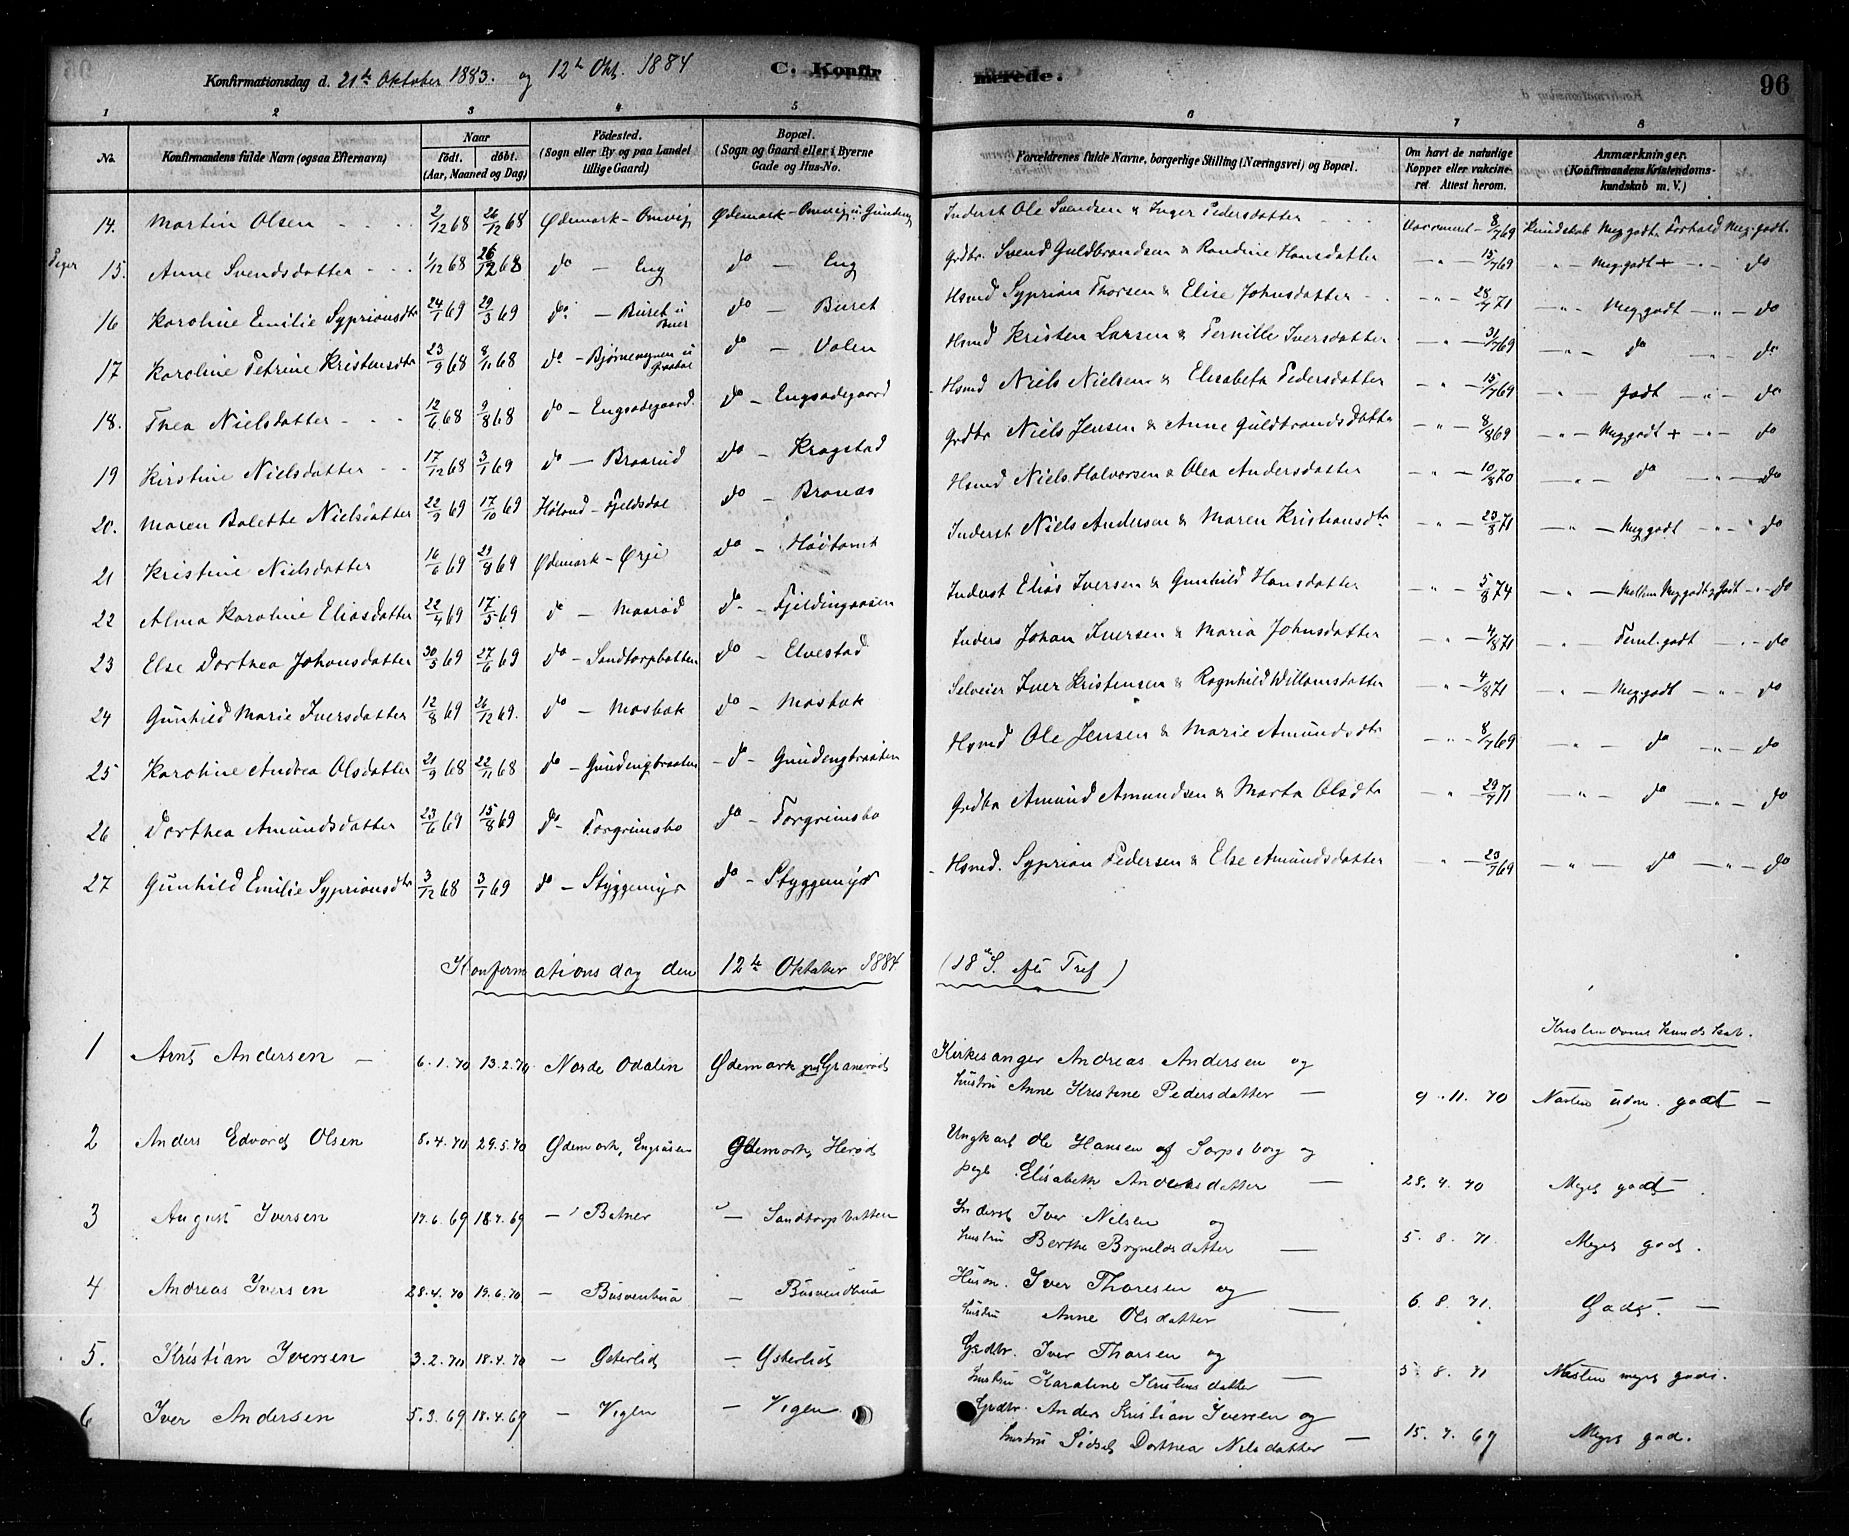 Konfirmationsdag d. 21de Oktober 1883. og 12te Okt. 1884 C. Konfirmerede. 96
1 2 3 4 5 6 7 8
No. Konfirmandens fulde Navn (ogsaa Efternavn) Naar födt. döbt. (Aar, Maaned og Dag) Födested. (Sogn eller By og paa Landet tillige Gaard) Bopæl. (Sogn og Gaard eller i Byerne Gade og Hus-No. Forældrenes fulde Navne, borgerlige Stilling (Næringsvei) og Bopæl. Om havt de naturlige Kopper eller vaccineret. Attest herom. Anmærkninger. (Konfirmandens Kristendomskundskab m. V.)
14. Martin Olsen 2/12 68 26/12 68 Ødemark - Omvig Ødemark - Omvig u. Gundeng Inderst Ole Svendsen & Inger Pedersdatter Vaccineret - 8/7 69 Kundskab Meg. godt. Forhold Meg. godt.
15. Anne Svendsdatter 1/12 68 26/12 68 do - Eng do - Eng Grdbr. Svend Guldbrandsen & Randine Hansdatter 15/7 69 Meg. godt + do
16 Karoline Emilie Syprionsdtr 24/1 69 29/3 69 do - Buret u Buer do - Buret Hsmd Syprian Thorsen & Elise Johnsdatter 28/7 71 Meg. godt do
17 Karoline Petrine Kristensdtr 23/9 68 8/11 68 do - Bjørnevognen u do - Volen Hsmd Kristen Larsen & Pernille Iversdatter 31/7 69 do do
18. Thea Nielsdatter 12/6 68 9/8 68 do - Engsødegaard. do - Engsødegaard Hsmd Niels Nielsen & Elisabeta Pedersdatter 15/7 69 Godt do
19 Kirstine Nielsdatter 17/12 68 3/1 69 do - Braarud do - Krogstad Grdbr Niels Jensen & Anne Guldbrandsdatter 8/8 69 Meg. godt + do
20. Maren Bolette Nielsdatter 22/9 69 17/10 69 Høland - Fjeldsdal do - Branæs Hsmd Niels Halvorsen & Olea Andersdatter 10/8 70 do do
21 Kristine Nielsdatter 16/6 69 29/8 69 Ødemark - Ørje do - Høitomt Inderst Niels Andersen & Maren Kristiansdtr 23/8 71 Meg godt do
22 Alma Karoline Eliasdatter 22/4 69 17/5 69 do - Maarud do - Fjeldingaasen Inderst Elias Iversen & Gunhild Hansdatter 5/8 74 Mellem Meg godt & Godt do
23 Else Dorthea Johansdatter 30/3 69 27/6 69 do - Sandtorpbatten do - Elvestad Inders Johan Iversen & Maria Johnsdatter 4/8 71 Teml. godt do
24 Gunhild Marie Iversdatter 12/8 69 26/12 69. do - Mosbæk do - Mosbæk Selveier Iver Kristensen & Ragnhild Willumsdatter 4/8 71 Meg. godt do
25 Karoline Andrea Olsdatter 21/9 68 22/11 68 do - Gundengbraaten do - Gundengbraaten Hsmd Ole Jensen & Marie Amundsdtr 8/7 69 do do
26 Dorthea Amundsdatter 23/6 69 15/8 69 do - Torgrimsbo do - Torgrimsbo Grdbr Amund Amundsen & Marta Olsdtr 29/7 71 do do
27 Gunhild Emilie Syprionsdtr 3/12 68 3/1 69 do - Styggemyr do - Styggemyr Hsmd. Syprian Pedersen & Else Amundsdatter 23/7 69 do do
Konfirmationsdag den 12te Oktober 1884 (18de S. eft. Tref)
Kristendoms kundskab.
1 Arnt Andersen 6.1.70 13.2.70 Nordre Odalen Ødemark Granerød Kirkesanger Andreas Andersen og
hustru Anne Kristine Pedersdatter 9.11.70 Næsten udm. godt
2 Anders Edvard Olsen 8.4.70 29.5.70 Ødemark, Engaasen Ødemark, Herød Ungkarl Ole Hansen af Sarpsborg og
pige Elisabeth Andersdatter 28.4.70 Meget godt
3 August Iversen 17.6.69 18.7.69 Batner Sandtorpbatten Inderst Iver Nilsen og
hustru Berthe Brynildsdatter 5.8.71. Meget godt.
4 Andreas Iversen 28.4.70 19.6.70 Busvenbua Busvendbua Husm. Iver Thoresen og
hustru Anne Olsdatter 6.8.71. Godt.
5. Kristian Iversen 3.2.70 18.4.70 Østerlid Østerlid Grdbr. Iver Thorsen og
hustru Karoline Kristensdatter 5.8.71 Næsten meget godt.
6 Iver Andersen 5.3.69 18.4.69 Vigen Vigen Grdbr. Anders Kristian Iversen og
hustru Sidsel Dorthea Nilsdatter 15.7.69 Meget god.